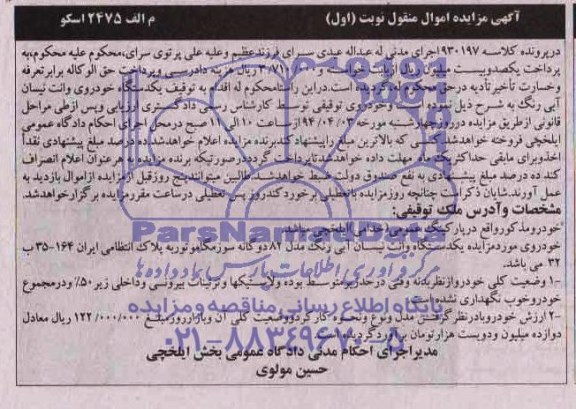 آگهی مزایده اموال منقول نوبت (اول) م الف ۲۴۷۵ اسکو
درپرونده کلاسه ۹۳۰۱۹۷ اجرای مدنی له عبداله عبدی سرای فرزندعظیم وعلیه علی پرتوی سرای،محکوم علیه محکوم،به
پرداخت یکصدوبیست میلیون ریال ازبابت خواسته و ریال هزینه دادرسی وپرداخت حق الوکاله برابرتعرفه
وخسارت تأخیرتأدیه درحق محکوم له گردیده است.دراین راستامحکوم له اقدام به توقیف یکدستگاه خودروی وانت نیسان
آبی رنگ به شرح ذیل نموده است وخودروی توقیفی توسط کارشناس رسمی دادگستری ارزیابی وپس ازطی مراحل
قانونی ازطریق مزایده درروزچهارشنبه مورخه ۹۴/۰۴/۰۳ ازساعت ۱۰ الی صبح درمحل اجرای احکام دادگاه عمومی
ایلخچی فروخته خواهدشد.کسی که بالاترین مبلغ راپیشنهادکندبرنده مزایده اعلام خواهدشد.ده درصد مبلغ پیشنهادی نقداً
اخذوبرای مابقی حداکثریک ماه مهلت داده خواهدشدتاپرداخت گردد.درصورتیکه برنده مزایده به هرعنوان اعلام انصراف
کند ده درصد مبلغ پیشنهادی به نفع صندوق دولت ضبط خواهدشد.طالبین میتوانندپنج روزقبل ازمزایده ازاموال بازدید به
عمل آورند.شایان ذکراست چنانچه روزمزایده باتعطیلی برخوردکندروز پس تعطیلی درساعت مقررمزایده برگزارخواهدشد.
مشخصات وآدرس ملک توقیفی:
خودرومذکورواقع درپارکینگ خدامی ایلخچی میباشد.
خودروی موردمزایده یکدستگاه وانت نیسان آبی رنگ مدل ۸۲ دوگانه سوزمگاموتوربه پلاک انتظامی ایران ۱۶۴-۳۵ب
۳۲ می باشد.
۱- وضعیت کلی خودروازنظربدنه وفنی درحدزیرمتوسط بوده ولاستیکها وتزئینات بیرونی وداخلی زیر۵۰٪ ودرمجموع
خودروخوب نگهداری نشده است.
۲- ارزش خودروبادرنظرگرفتن مدل ونوع ونحوه کارکردووضعیت کلی آن وبازارروزمبلغ ۱۲۲/۰۰۰/۰۰۰ ریال معادل
دوازده میلیون ودویست هزارتومان برآوردگردید.
مدیراجرای احکام مدنی دادگاه عمومی بخش ایلخچی
حسین مولوی
ParsNamadData
مرکز فرآوری اطلاعات پارس نماد داده ها
پایگاه اطلاع رسانی مناقصه و مزایده
۰۲۱-۸۸۳۴۹۶۷۰-۵